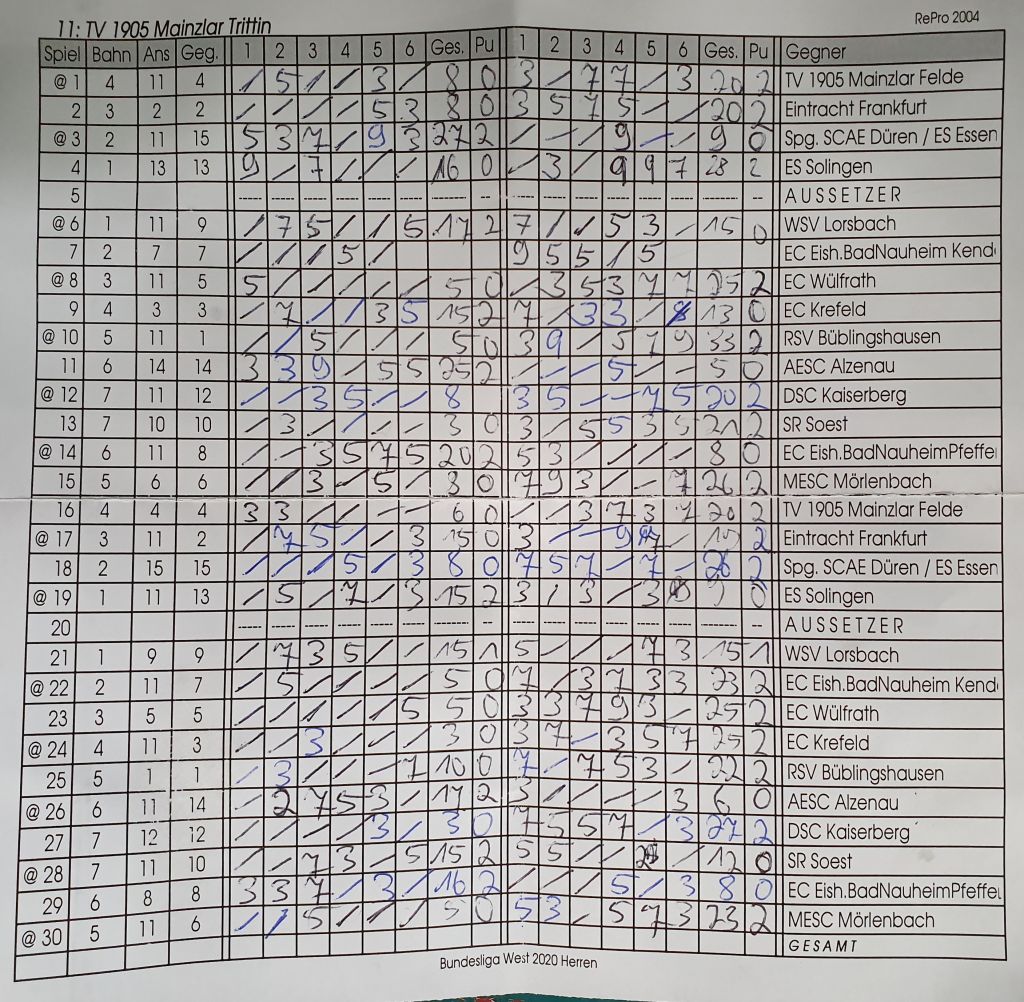 11: TV 1905 Mainzlar Trittin
RePro 2004
Spiel Bahn Ans Geg. 1 2 3 4 5 6 Ges. Pu 1 2 3 4 5 6 Ges. Pu Gegner
@ 1 4 11 4 / 5 / / 3 / 8 0 3 / 7 7 / 3 20 2 TV 1905 Mainzlar Felde
2 3 2 2 / / / / 5 3 8 0 3 5 7 5 / / 20 2 Eintracht Frankfurt
@ 3 2 11 15 5 3 7 / 9 3 27 2 / / / 9 / / 9 0 Spg. SCAE Düren / ES Essen
4 1 13 13 9 / 7 / / / 16 0 / 3 / 9 9 7 28 2 ES Solingen
5 ----- ----- ----- ----- ----- ----- ----- -- ----- ----- ----- ----- ----- ----- ----- -- AUSSETZER
@ 6 1 11 9 / 7 5 / / 5 17 2 7 / / 5 3 - 15 0 WSV Lorsbach
7 2 7 7 / / / 5 / 9 5 5 / 5 EC Eish.BadNauheim Kend
@ 8 3 11 5 5 / / / / / 5 0 / 3 5 3 7 7 25 2 EC Wülfrath
9 4 3 3 / 7 / / 3 5 15 2 7 / 3 3 / 13 0 EC Krefeld
@ 10 5 11 1 / / 5 / / / 5 0 3 9 / 5 7 9 33 2 RSV Büblingshausen
11 6 14 14 3 3 9 / 5 5 25 2 / / / 5 / / 5 0 AESC Alzenau
@ 12 7 11 12 / / 3 5 / / 8 3 5 - - 7 5 20 2 DSC Kaiserberg
13 7 10 10 / 3 / / / / 3 0 3 / 5 5 3 5 21 2 SR Soest
@ 14 6 11 8 / / 3 5 7 5 20 2 5 3 / / / / 8 0 EC Eish.BadNauheimPfeffe
15 5 6 6 / / 3 / 5 / 8 0 7 9 3 / / 7 26 2 MESC Mörlenbach
16 4 4 4 3 3 / / / / 6 0 / / 3 7 3 7 20 2 TV 1905 Mainzlar Felde
@ 17 3 11 2 / 7 5 / / 3 15 0 3 / / 9 / 2 Eintracht Frankfurt
18 2 15 15 / / / 5 / 3 8 0 7 5 7 - 7 - 26 2 Spg. SCAE Düren / ES Essen
@ 19 1 11 13 / 5 / 7 / 3 15 2 3 / 3 / 3 9 0 ES Solingen
20 ----- ----- ----- ----- ----- ----- ----- -- ----- ----- ----- ----- ----- ----- ----- -- AUSSETZER
21 1 9 9 / 7 3 5 / / 15 1 5 / / / 7 3 15 1 WSV Lorsbach
@ 22 2 11 7 / 5 / / / / 5 0 7 / 3 7 3 3 23 2 EC Eish.BadNauheim Kend
23 3 5 5 / / / / / 5 5 0 3 3 7 9 3 / 25 2 EC Wülfrath
@ 24 4 11 3 / / 3 / / / 3 0 3 7 / 3 5 7 25 2 EC Krefeld
25 5 1 1 / 3 / / / 7 10 0 7 / 7 5 3 - 22 2 RSV Büblingshausen
@ 26 6 11 14 / 2 7 5 3 / 17 2 3 / / / / 3 6 0 AESC Alzenau
27 7 12 12 / / / / 3 / 3 0 7 5 5 7 / 3 27 2 DSC Kaiserberg
@ 28 7 11 10 / / 7 3 / 5 15 2 5 5 / / / 12 0 SR Soest
29 6 8 8 3 3 7 / 3 / 16 2 / / / 5 / 3 8 0 EC Eish.BadNauheimPfeffe
@ 30 5 11 6 / / 5 / / / 5 0 5 3 / 5 7 3 23 2 MESC Mörlenbach
GESAMT
Bundesliga West 2020 Herren